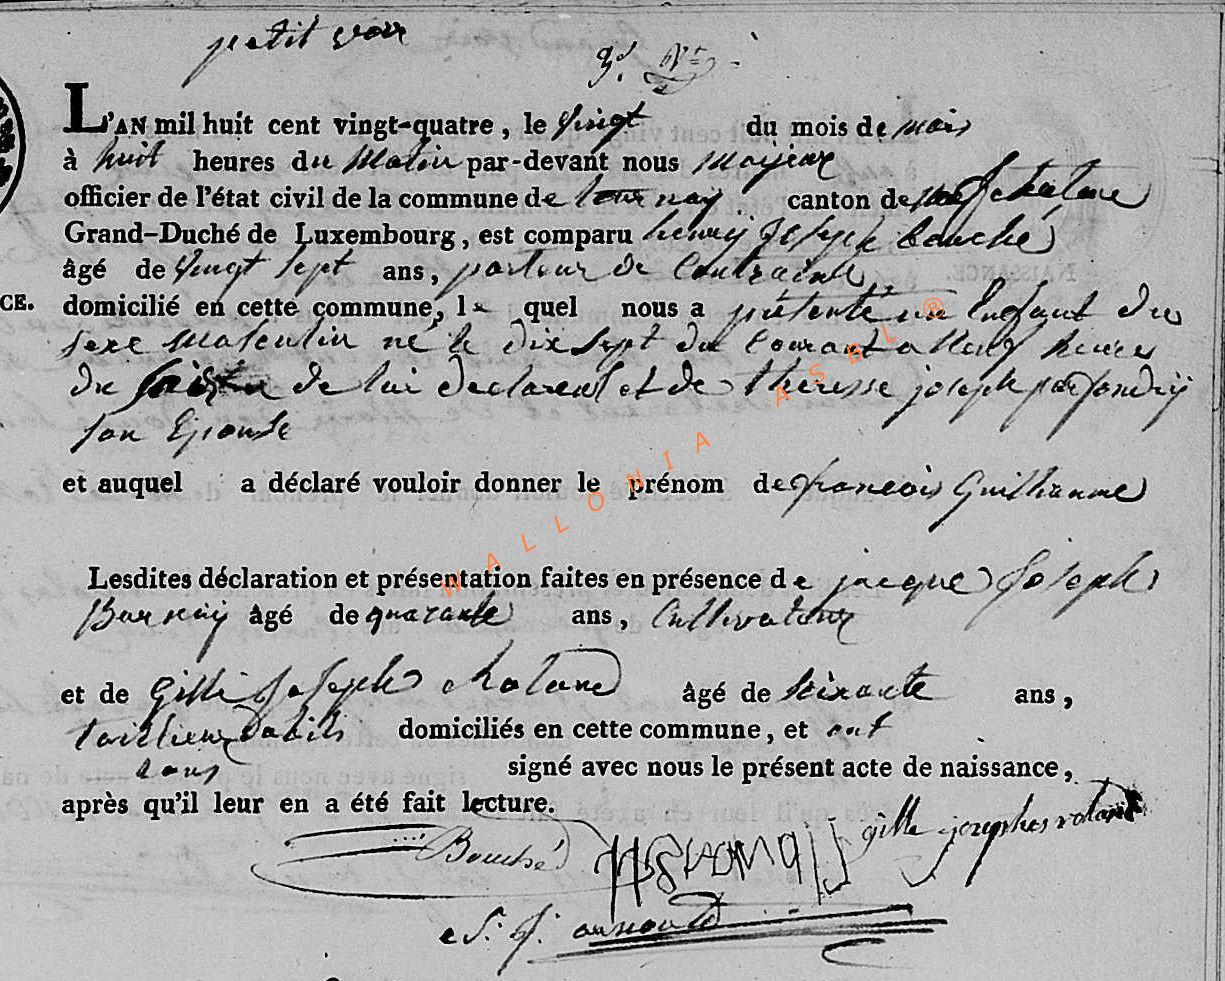 petit voir
L'AN mil huit cent vingt-quatre, le vingt du mois de mars
à huit heures du Matin par-devant nous Mayeur
officier de l'état civil de la commune de tournay canton de neufchateau
Grand-Duché de Luxembourg, est comparu henry Joseph bouché
âgé de vingt sept ans, porteur de Contrainte
CE. domicilié en cette commune, le quel nous a présenté un Enfant du
sexe Masculin né le dix sept du Courant a Neuf heures
du de lui declarant et de theresse joseph parfondry
son Epouse
et auquel a déclaré vouloir donner le prénom de francois Guilliaume
Lesdites déclaration et présentation faites en présence de jacque Joseph
âgé de quarante ans, Cultivateur
et de Gille Joseph âgé de soixante ans,
taillieur dabits domiciliés en cette commune, et ont
tous signé avec nous le présent acte de naissance,
après qu'il leur en a été fait lecture.
Bouché
gille joseph
WALLONIA ASBL ®